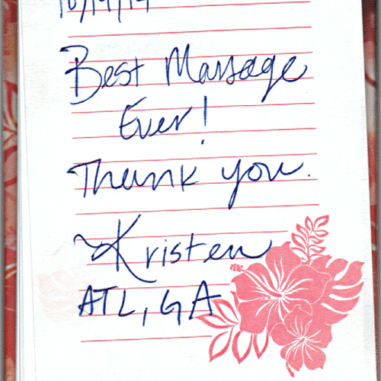 Best Massage
Ever!
Thank you.
Kristen
ATL, GA